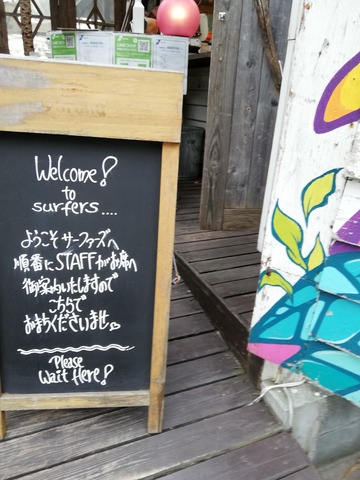 Welcome!
to
surfers....
ようこそサーファーズへ
順番にSTAFFがお席へ
御案内いたしますので
こちらで
おまちくださいませ
Please
Wait Here!